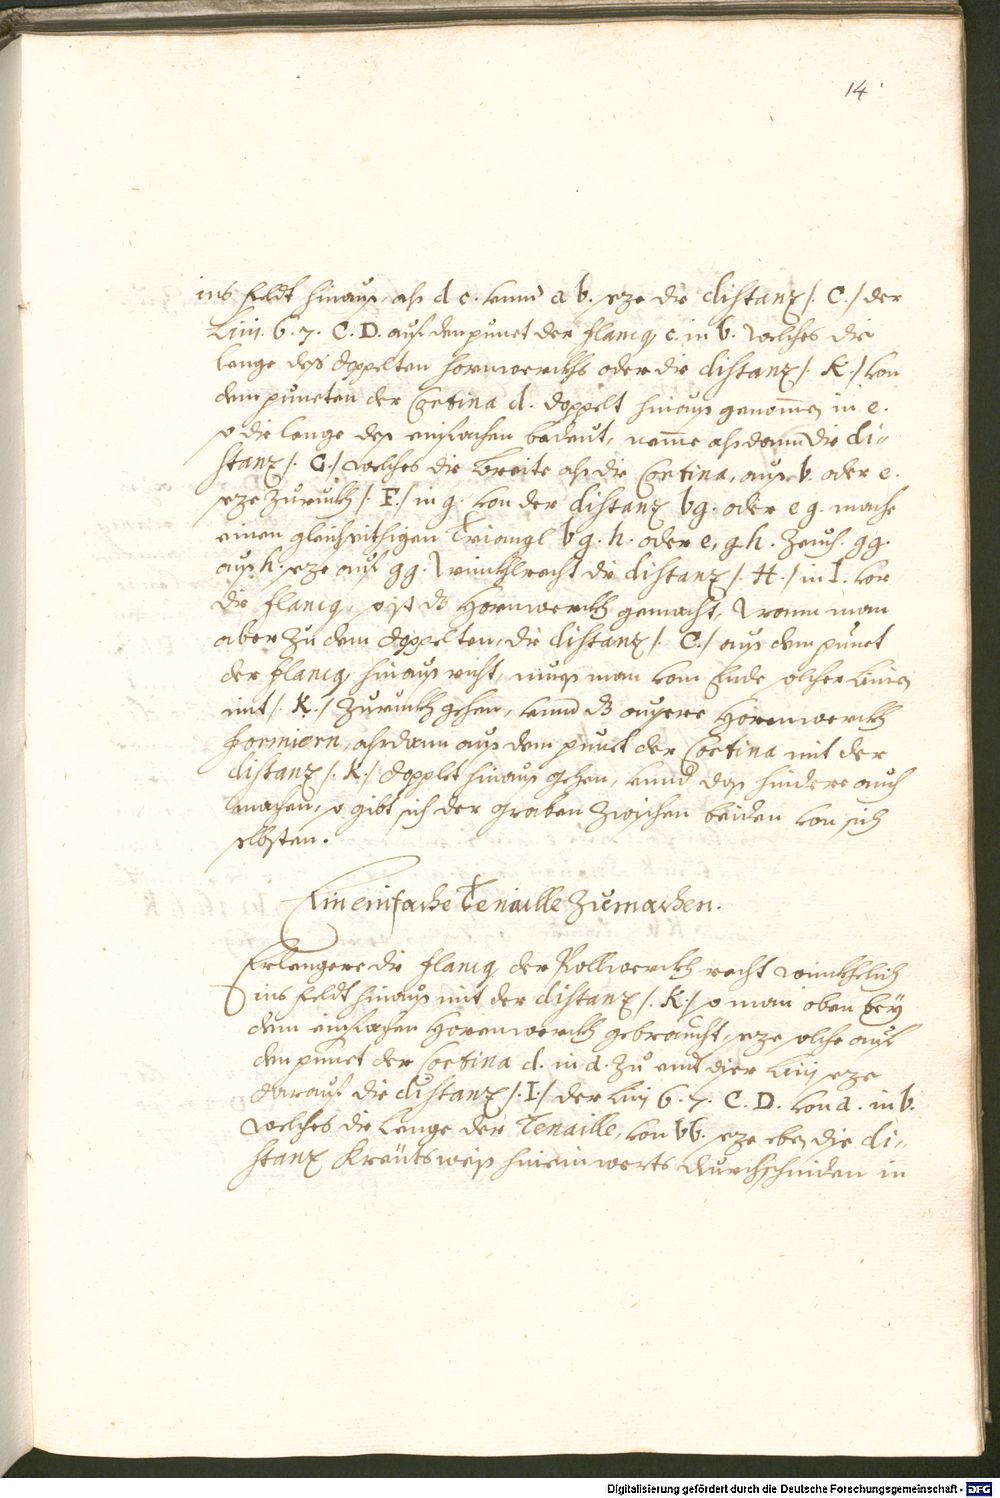 14
ins Feldt hinauß, alß d c. vnnd a b. seze die distanz /. C./ der
Linj. 6. 7. C. D. auß dem punct der flancq, c. in b. welches die
lenge deß doppelten hornwerckhs oder die distanz /. K./ von
dem puncten der Cortina d. doppelt hinauß genom̄en in e.
so die lenge deß einfachen bedeut, nem̄e alßdann die di-
stanz /. G./ welches die breite alß die Cortina, auß b. oder e.
seze zuruckh /. F./ in g. von der distanz bg. oder e g. mache
einen gleichseithigen Triangl b g. h. oder e, g h. Zeuch. gg.
auß h. seze auf gg. winckhlrecht die distanz /. H./ in I. vor
die flancq, so ist dz Hornwerckh gemacht, Wann man
aber zu dem doppelten, die distanz /. C./ auß dem punct
der flancq, hinauß ruckht, mueß man vom Ende solcher linien
mit /. K./ zuruckh gehen, vnnd dz eüssere Hornwerckh
formiern, alßdann auß dem punct der Cortina mit der
distanz /. K./ dopplet hinauß gehen, vnnd daß hindere auch
machen, so gibt sich der graben zwischen beiden von sich
selbsten.
Ein einfache Tenaille Zumachen.
Erlengere die flancq, der Bollwerckh recht winckhelich
ins Feldt hinauß mit der distanz /. K./ so man oben bey
dem einfachen Hornwerckh gebraucht, seze solche auß
dem punct der Cortina d. in a. zu end diser Linj seze
darauß die distanz /. I./ der Linj 6. 7. C. D. von a. in b.
welches die lenge der Tenaille, von bb. seze eben die di-
stanz Kreützweiß hineinwerts durchschniden in
Digitalisierung gefördert durch die Deutsche Forschungsgemeinschaft - DFG